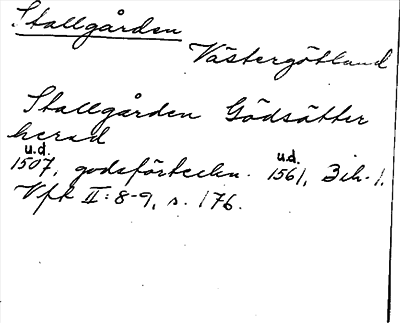 Stallgården
Västergötland
Stallgården Gödsätter
herad
u.d. u.d.
1507, godsförteckn. 1561, Bih. 1.
Vfk II: 8-9, s. 176.